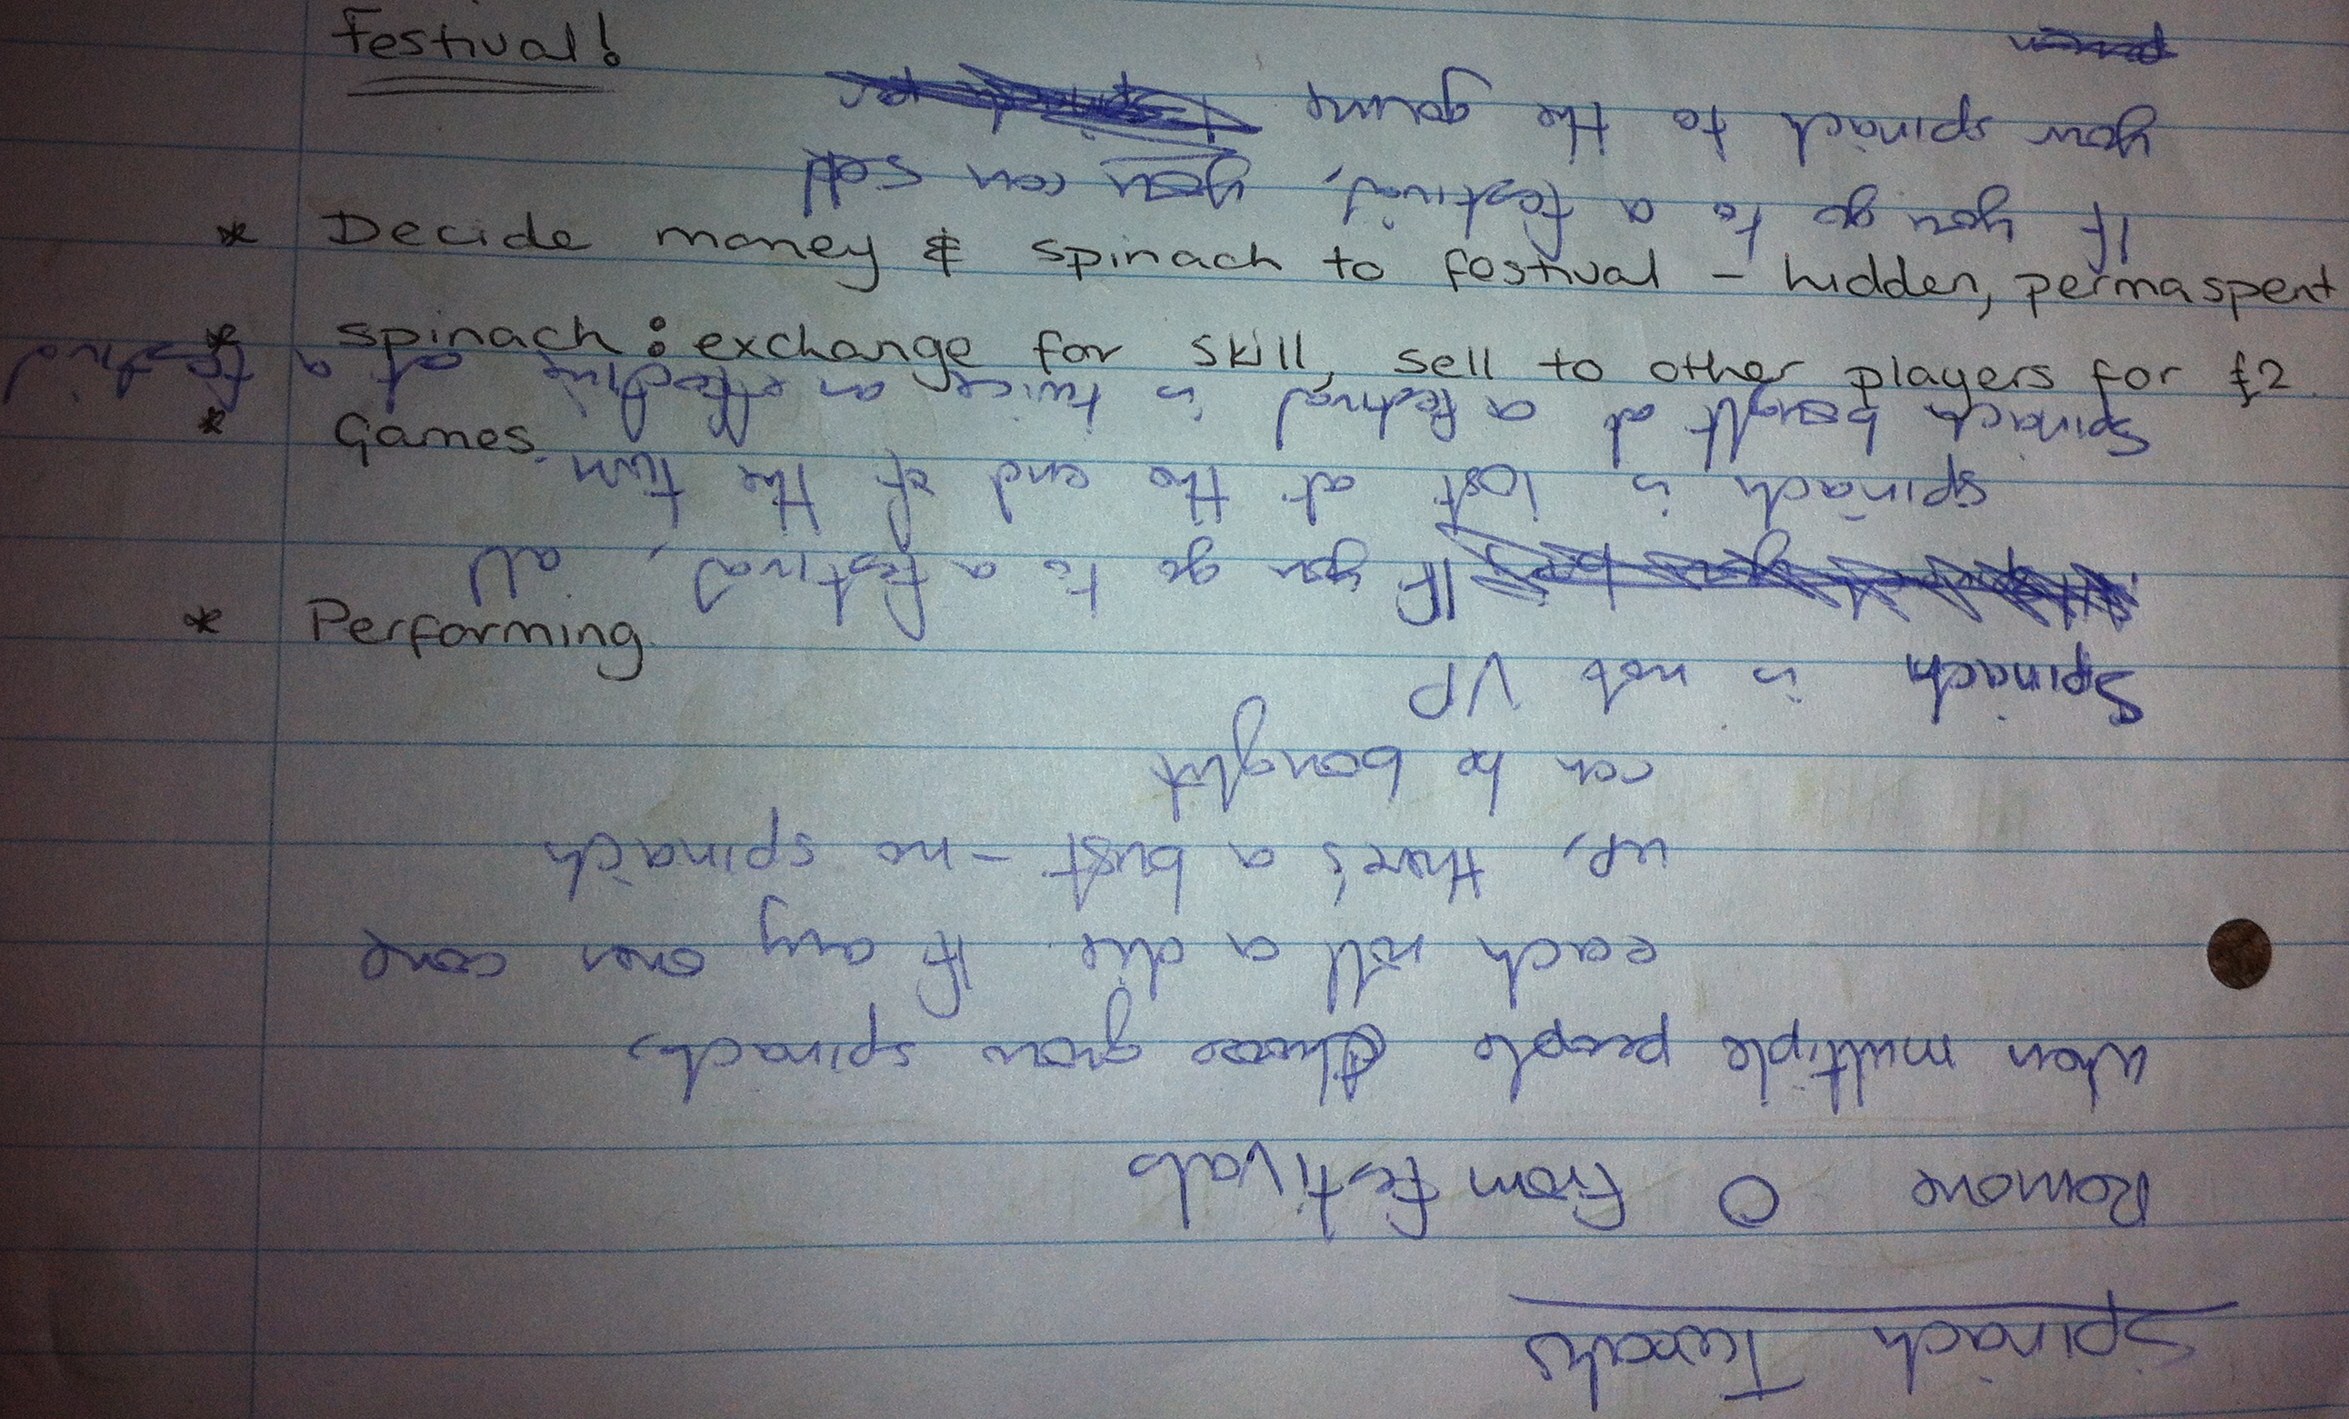 Festival!
* Decide money & spinach to festival - hidden, permaspent
* spinach: exchange for skill, sell to other players for £2.
* Games.
* Performing
Spinach Tweaks
Remove 0 from festivals
When multiple people choose grow spinach,
each roll a die. If any ones come
up, there's a bust - no spinach
can be bought
Spinach is not VP
If you go to a festival, all
spinach is lost at the end of the turn
Spinach bought at a festival is twice as effective at a festival
If you go to a festival, you can sell
your spinach to the game